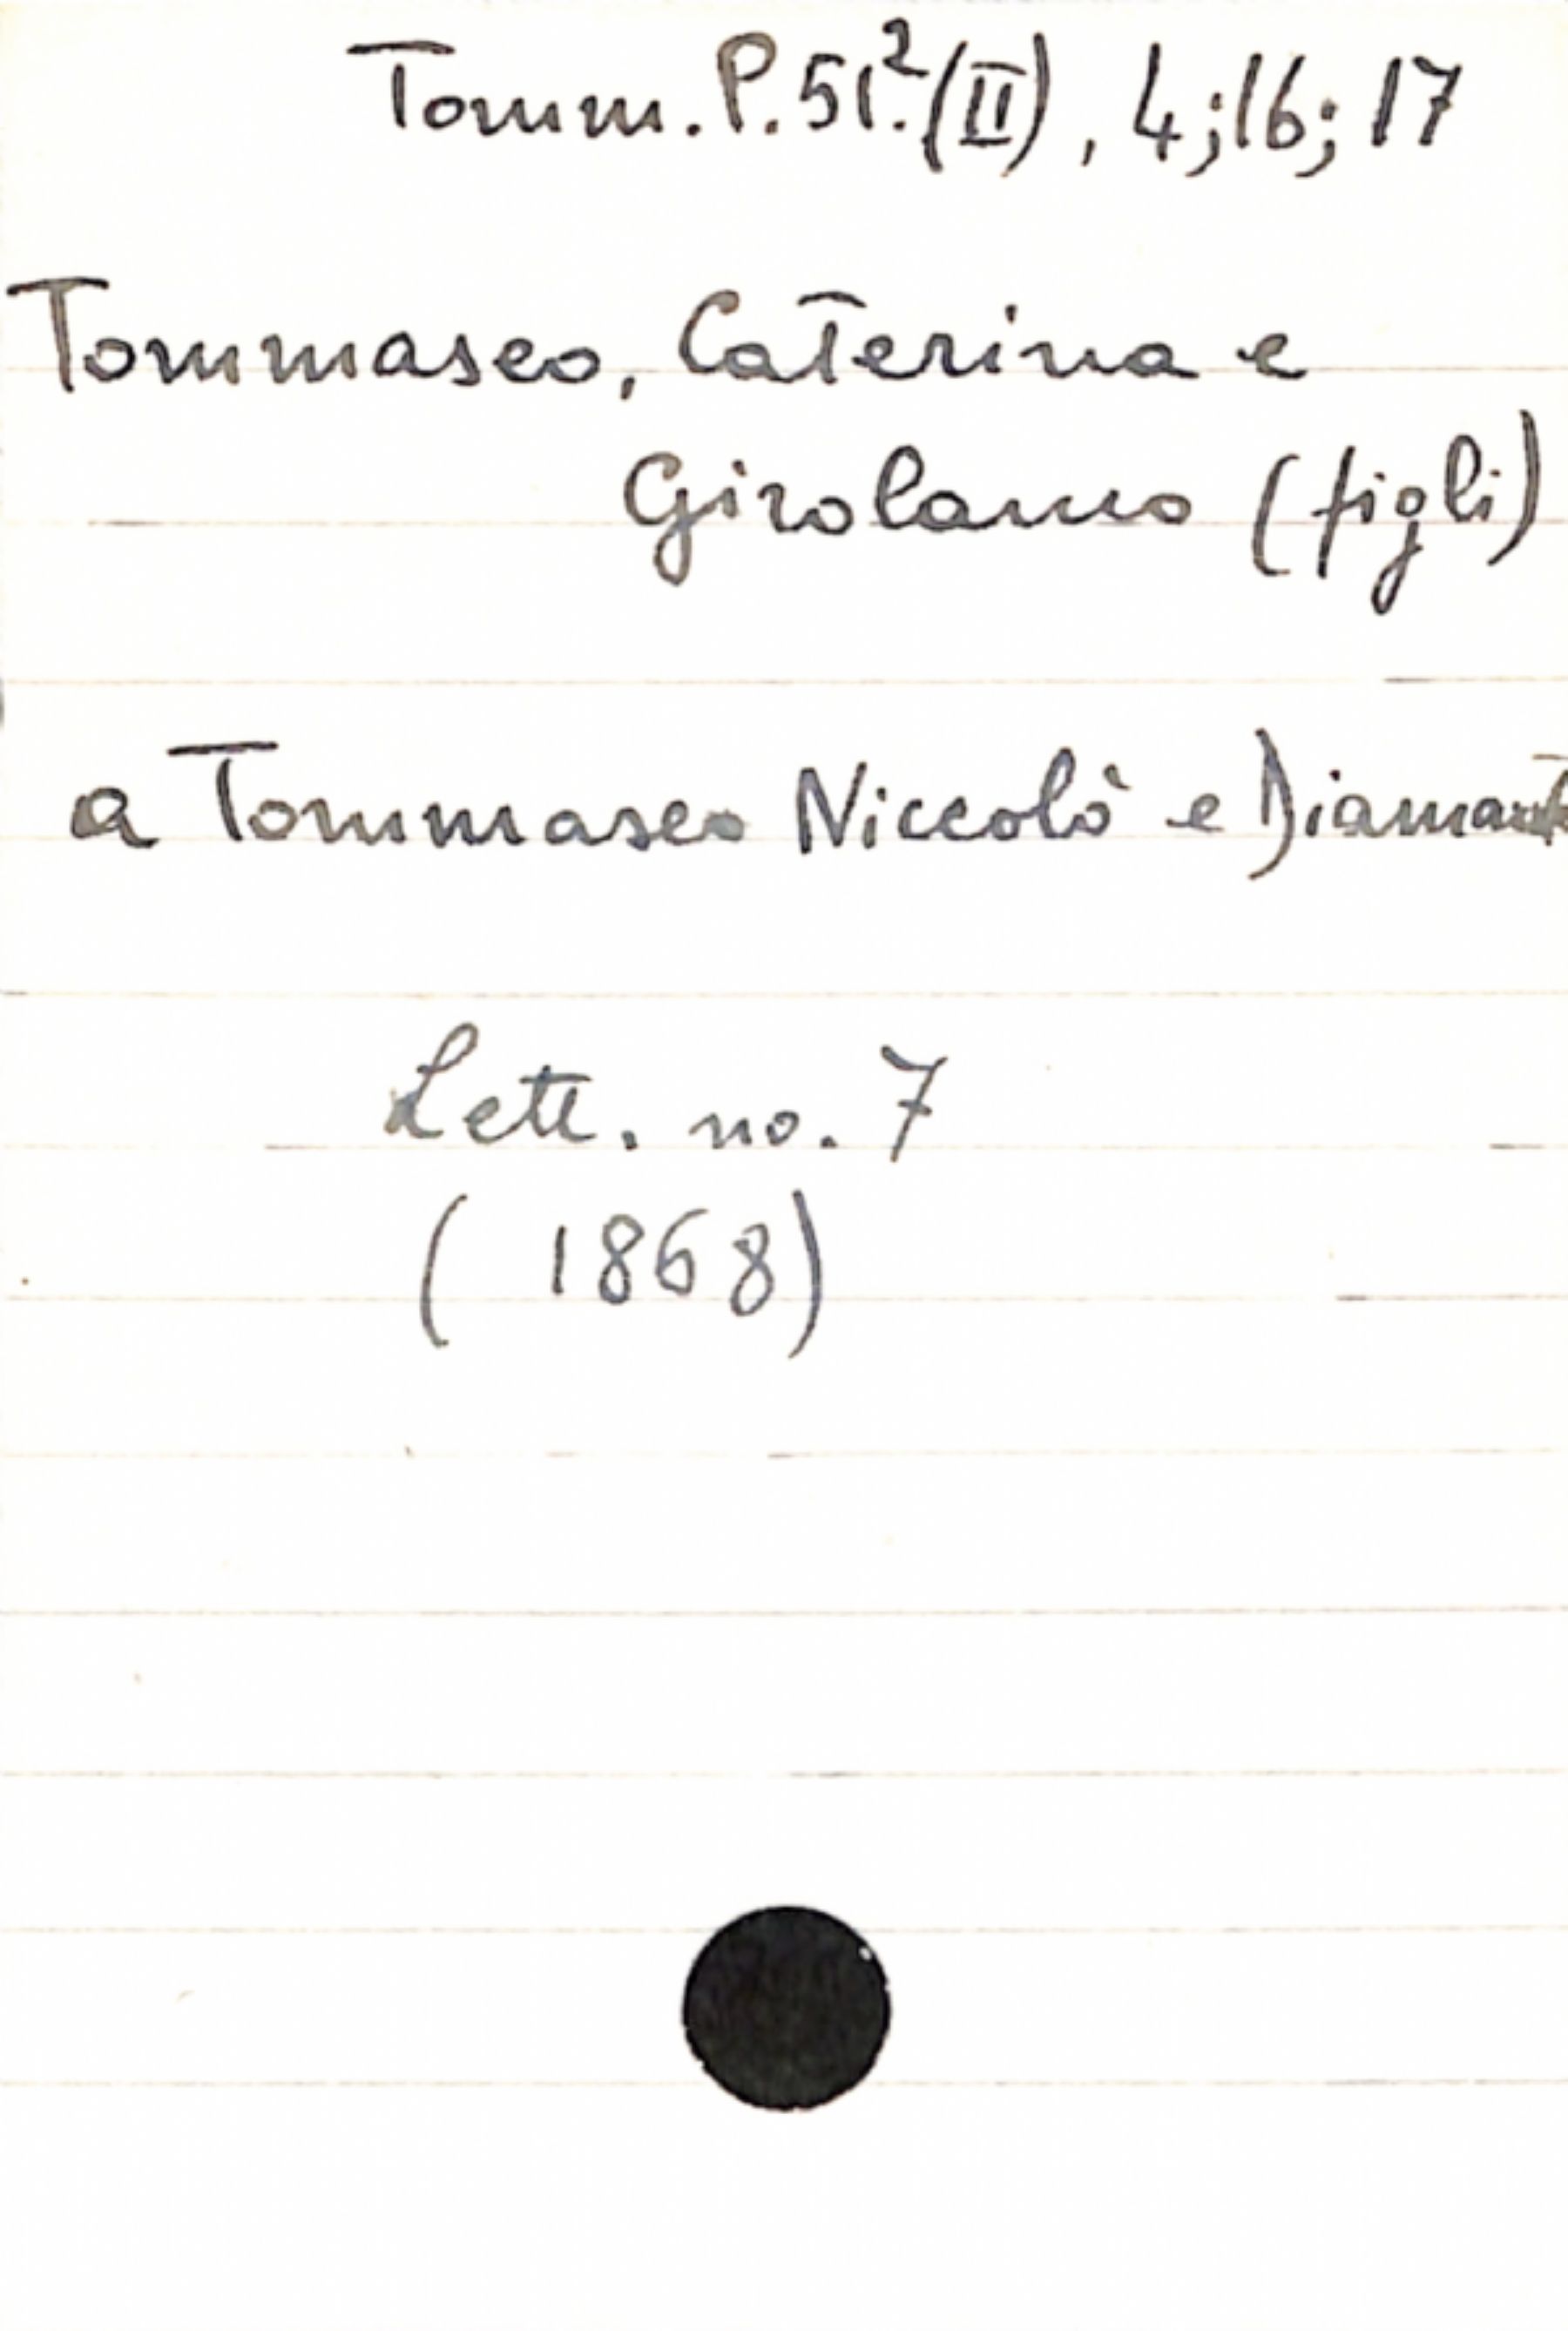 Tomm. P. 51.² (II), 4; 16; 17
Tommaseo, Caterina e
Girolamo (figli)
a Tommaseo Niccolò e Diamante
Lett. no. 7
( 1868)